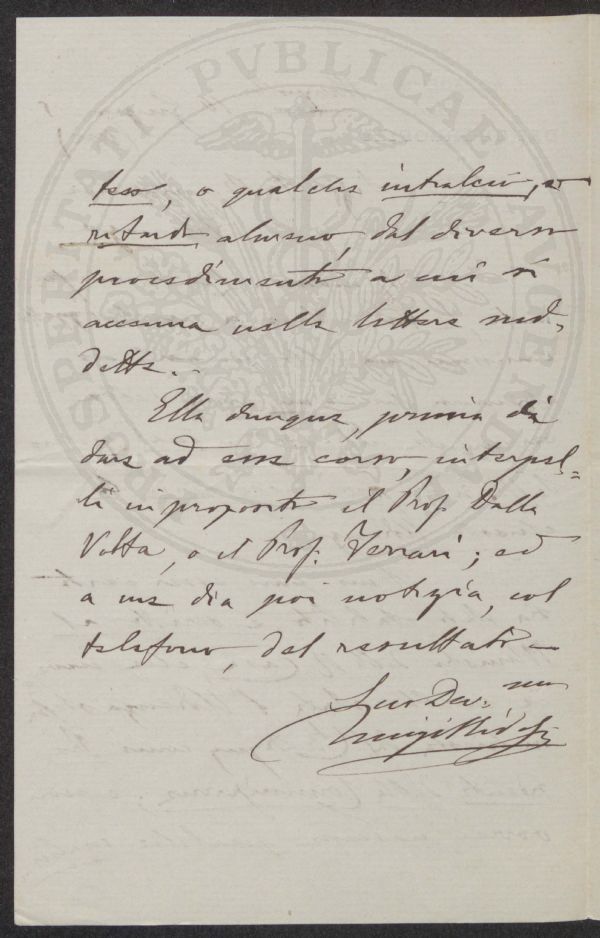 PROSPERITATI PVBLICAE AVGENDAE
tesso, o qualche intralcio, o
ritardo almeno, dal diverso
procedimento a cui si
accenna nella lettera sud-
detta.
Ella dunque, prima di
dare ad esse corso, interpel=
li in proposito il Prof. Dalla
Volta, o il Prof. Ferrari; ed
a me dia poi notizia, col
telefono, del resultato —
Suo Dev.mo
Luigi